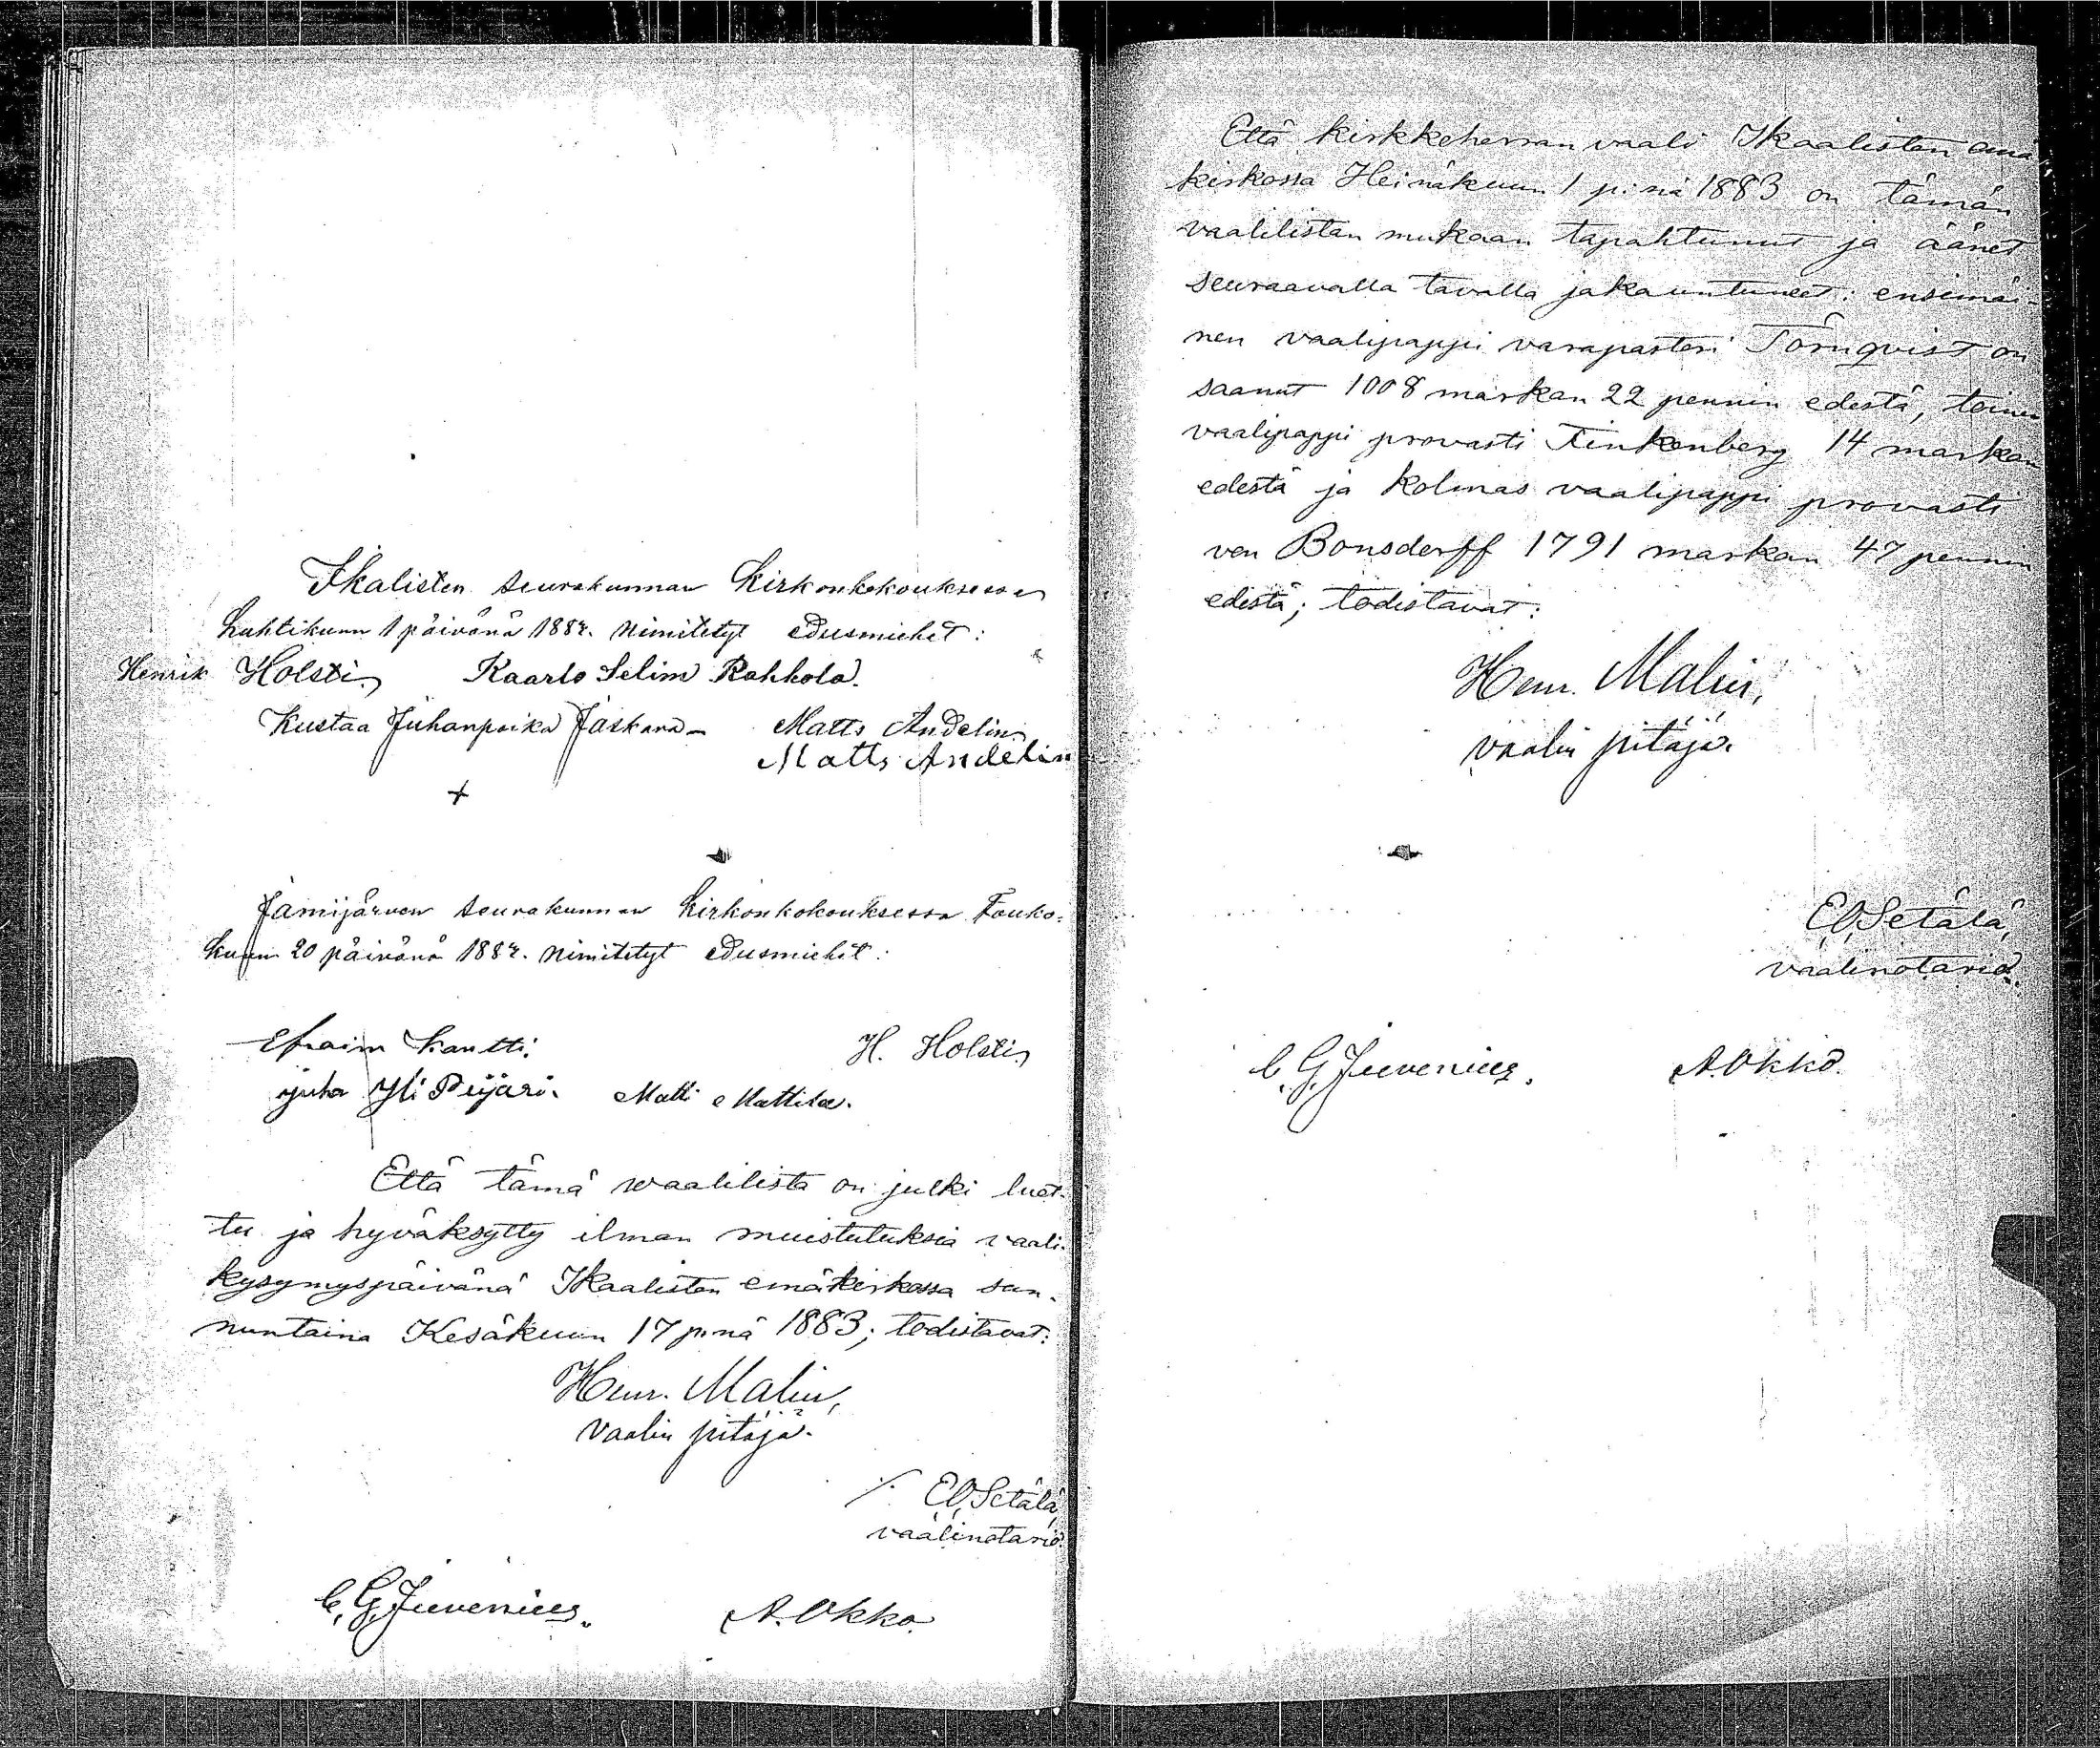 Ikalisten seurakunnan kirkonkokouksessa
huhtikuun 1 päivänä 1882. nimitetyt edusmiehet:
Henrik Holsti, Kaarlo Selim Rahkola.
Kustaa Juhanpoika Jaskara Matts Andelin
Matts Andelin
+
Jämijärven seurakunnan kirkonkokouksessa Touko-
kuun 20 päivänä 1882. nimitetyt edusmiehet:
Efraim Kantti. H. Holsti,
Juha Yli Peijari. Matti Mattila.
Että tämä waalilista on julki luet-
tu ja hyväksytty ilman muistutuksia vaali-
kysymyspäivänä Ikaalisten emäkirkossa sun-
nuntaina Kesäkuun 17 p:nä 1883; todistavat:
Henr. Malin,
Vaalin pitäjä.
E.O. Setälä,
vaalinotario.
C. G. Juvenius. A. Okko.
Että kirkkoherran vaali Ikaalisten emä
kirkossa Heinäkuun 1 p:nä 1883 on tämän
vaalilistan mukaan tapahtunut ja äänet
seuraavalla tavalla jakauntuneet: ensimäi-
nen vaalipappi varapastori Törnqvist on
saanut 1008 markan 22 pennin edestä, toinen
vaalipappi provasti Finkenberg 14 markan
edestä ja kolmas vaalipappi provasti
von Bonsdorff 1791 markan 47 pennin
edestä; todistavat:
Henr. Malin,
vaalin pitäjä.
E.O. Setälä,
vaalinotario.
C. G. Juvenius. A. Okko.